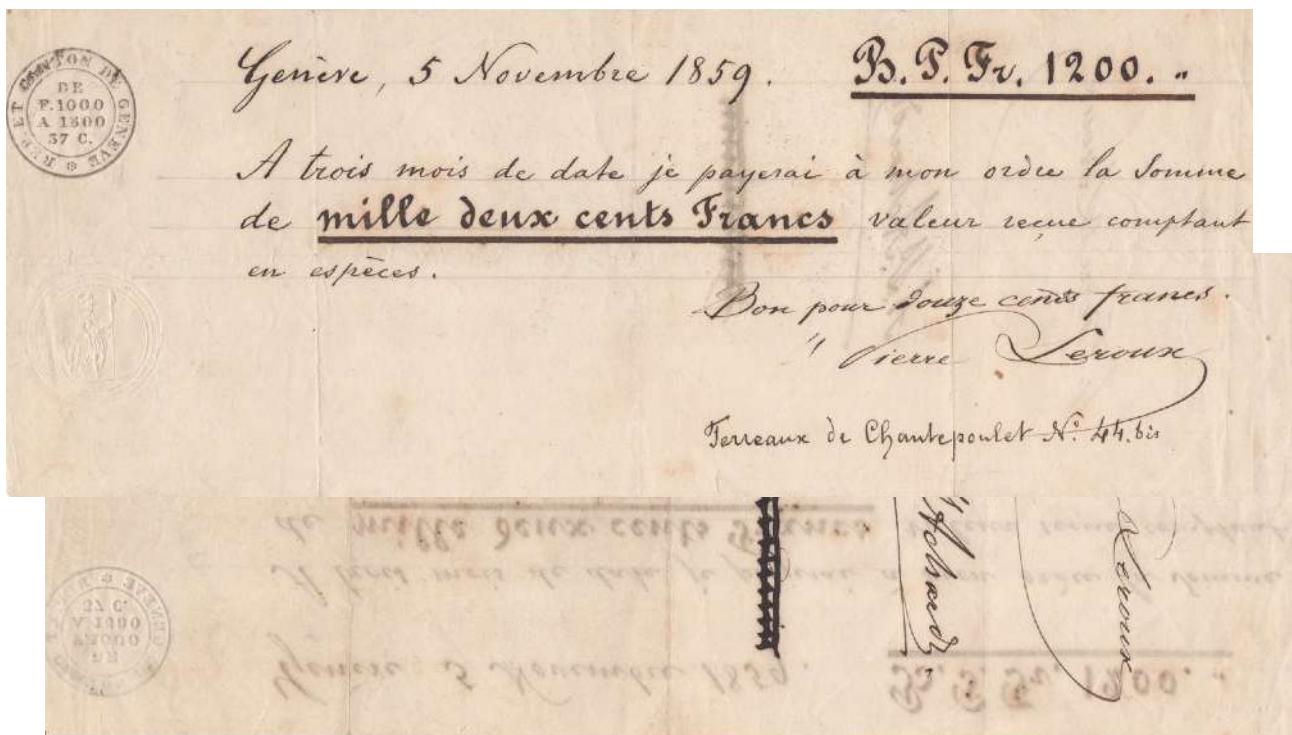 REP. ET CANTON DE GENEVE
DE
F. 1000
A 1500
37 C.
Genève, 5 Novembre 1859. B. P. Fr. 1200. "
A trois mois de date je payerai à mon ordre la somme
de mille deux cents Francs valeur reçue comptant
en espèces.
Bon pour douze cents francs.
Pierre Leroux
Terreaux de Chantepoulet N.° 44. bis
Leroux